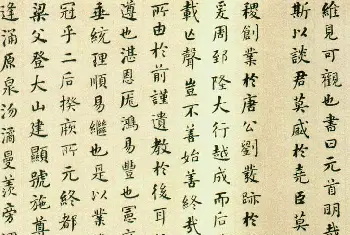 維見可觀也書曰元首明哉
斯以談君莫盛於堯臣莫
稷創業於唐公劉發跡於
爰周郅隆大行越成而后
載亡聲豈不善始善終哉
所由於前謹遺教於後耳
遵也湛恩厖鴻易豐也憲
垂統理順易繼也是以業
冠乎二后揆厥所元終都
梁父登大山建顯號施尊
逢涌原泉沕潏曼羨旁